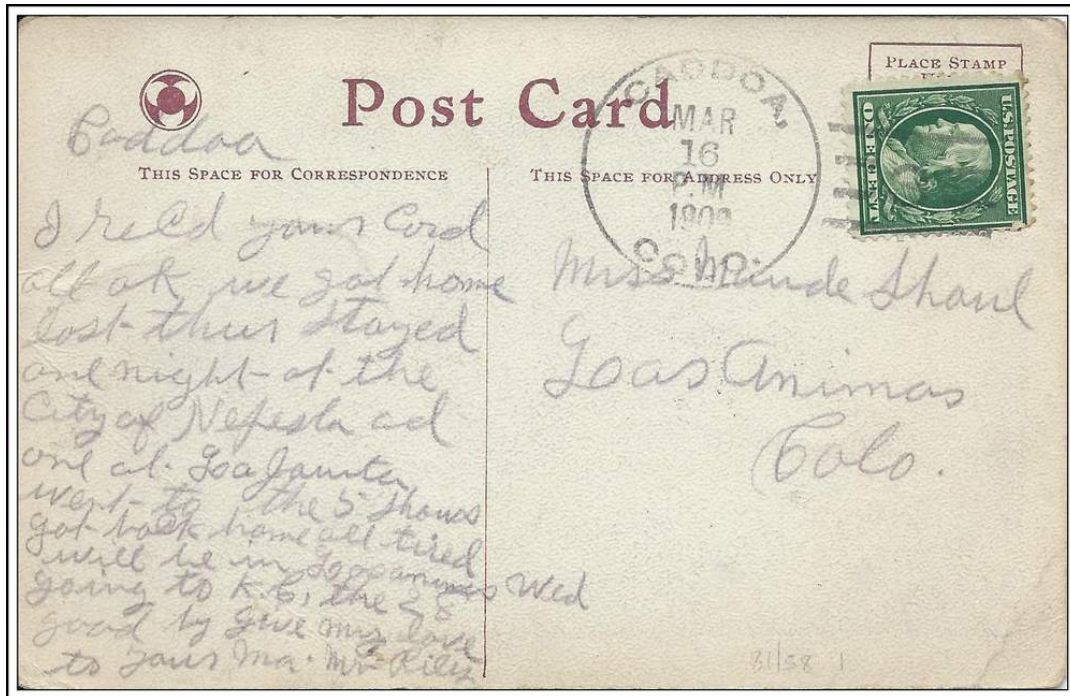 PLACE STAMP
Post Card
CADDOA,
MAR
16
P.M
1909
COLO.
U.S. POSTAGE
ONE CENT
Caddoa
THIS SPACE FOR CORRESPONDENCE
THIS SPACE FOR ADDRESS ONLY
I recd your Card
all ok we got home
last thur stayed
one night at the
City of Nepesta ad
one at La Junta
went to the 5 Shows
got back home all tired
will be in Wed
going to K.C. the
good by Give my love
to your Ma. Mr Riley
Miss Maude Shaul
Loas Animas
Colo.
81/58 1